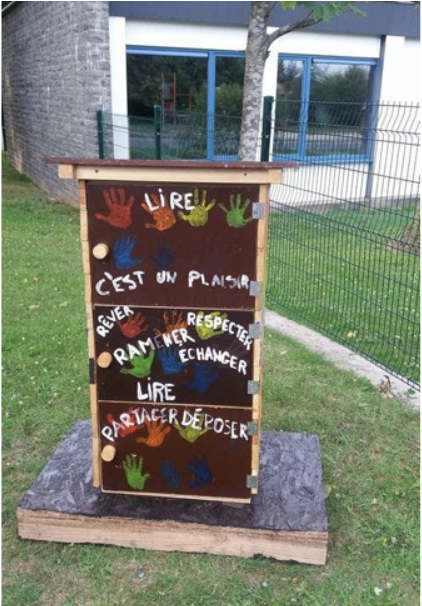 LIRE
C'EST UN PLAISIR
RÊVER RESPECTER
RAMENER ECHANGER
LIRE
PARTAGER DÉPOSER